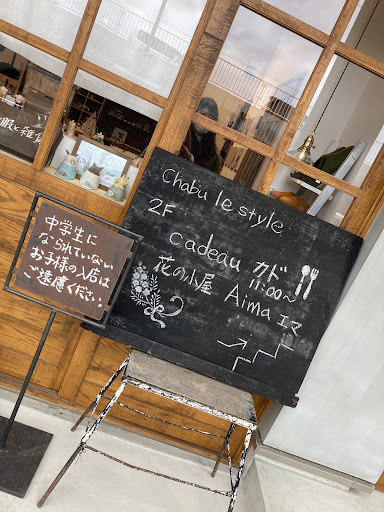 服と雑貨
中学生に
なられていない
お子様の入店は
ご遠慮ください
Chabu le style
2F
cadeau カド 11:00〜
花の小屋 Aima エマ